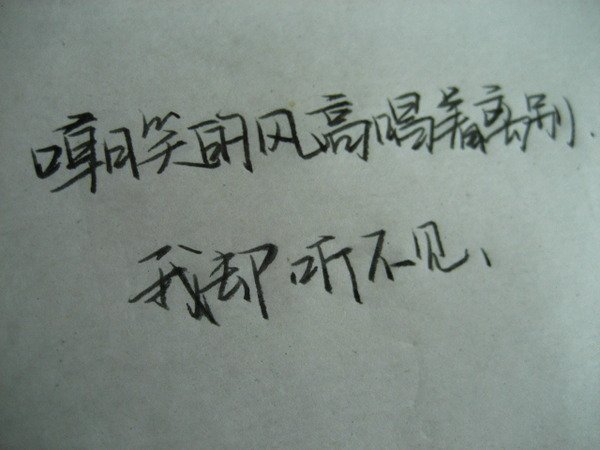 嘲笑的风高唱着离别.
我却听不见、